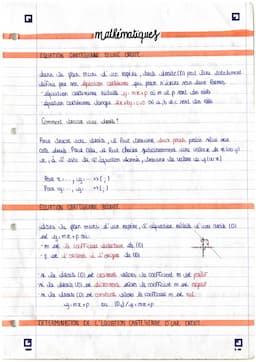 mathématiques
EQUATION CARTESIENNE D'UNE DROITE
dans le plan muni d'un repère, toute droite (D) peut être
définie par une équation cartésienne qui peut
équation cartésienne réduite y = mx + p où m et p sont des réels
équation cartésienne ax + by + c = 0 où a, b et c sont des réels
Comment tracer une droite ?
Pour tracer une droite, il faut deux points
cette droite. Pour cela, il faut choisir une valeur de x (ou y)
et, à l'aide de l'équation donnée, la valeur de y (ou x)
Pour x = ..., y = ... → ( ; )
Pour x = ..., y = ... → ( ; )
EQUATION CARTESIENNE REDUITE
dans le plan muni d'un repère, l'équation réduite d'une droite (D)
est y = mx + p où :
- m est le coefficient directeur de (D)
- p est l'ordonnée à l'origine de (D)
si la droite (D) est croissante alors le coefficient m est positif
si la droite (D) est décroissante alors le coefficient m est négatif
si la droite (D) est constante alors le coefficient m est nul
y = mx + p ou (D) : y = mx + p
DETERMINATION DE L'EQUATION CARTESIENNE D'UNE DROITE